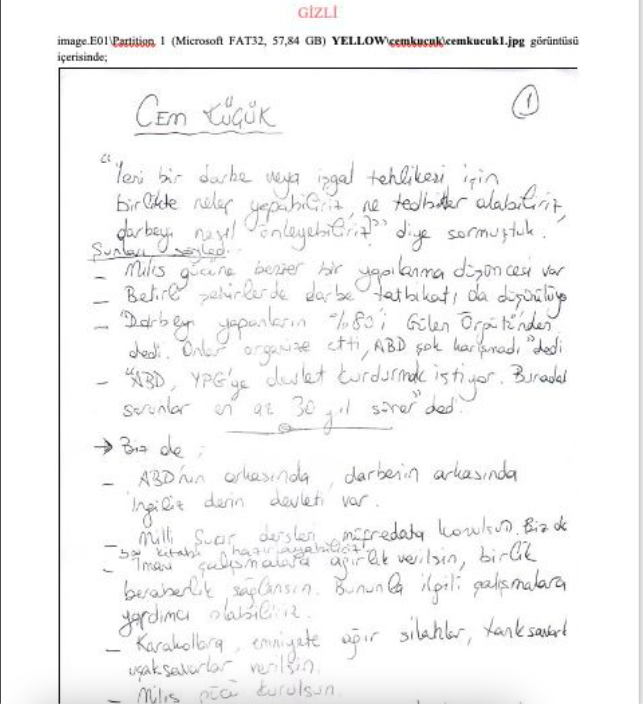 GİZLİ
image.E01\Partition 1 (Microsoft FAT32, 57,84 GB) YELLOW\cemkucuk\cemkucuk1.jpg görüntüsü
içerisinde;
CEM KÜÇÜK
1
"Yeni bir darbe veya işgal tehlikesi için
birlikte neler yapabiliriz, ne tedbirler alabiliriz,
darbeyi nasıl önleyebiliriz?" diye sormuştuk.
Şunları söyledi.
- Milis gücüne benzer bir yapılanma düşüncesi var
- Belirli şehirlerde darbe tatbikatı da düşünülüyo
- "Darbeyi yapanların %80'i Gülen Örgütü'nden
dedi. Onlar organize etti, ABD çok karışmadı" dedi
- "ABD, YPG'ye devlet kurdurmak istiyor. Buradaki
sorunlar en az 30 yıl sürer" dedi.
→ Biz de ;
- ABD'nin arkasında, darbenin arkasında
İngiliz derin devleti var.
- Milli Şuur dersleri müfredata konulsun. Biz de
kitabı hazırlayabiliriz
- İmani çalışmalara ağırlık verilsin, birlik
beraberlik sağlansın. Bununla ilgili çalışmalara
yardımcı olabiliriz.
- Karakollara, emniyete ağır silahlar, tanksavar
uçaksavarlar verilsin.
- Milis gücü kurulsun.